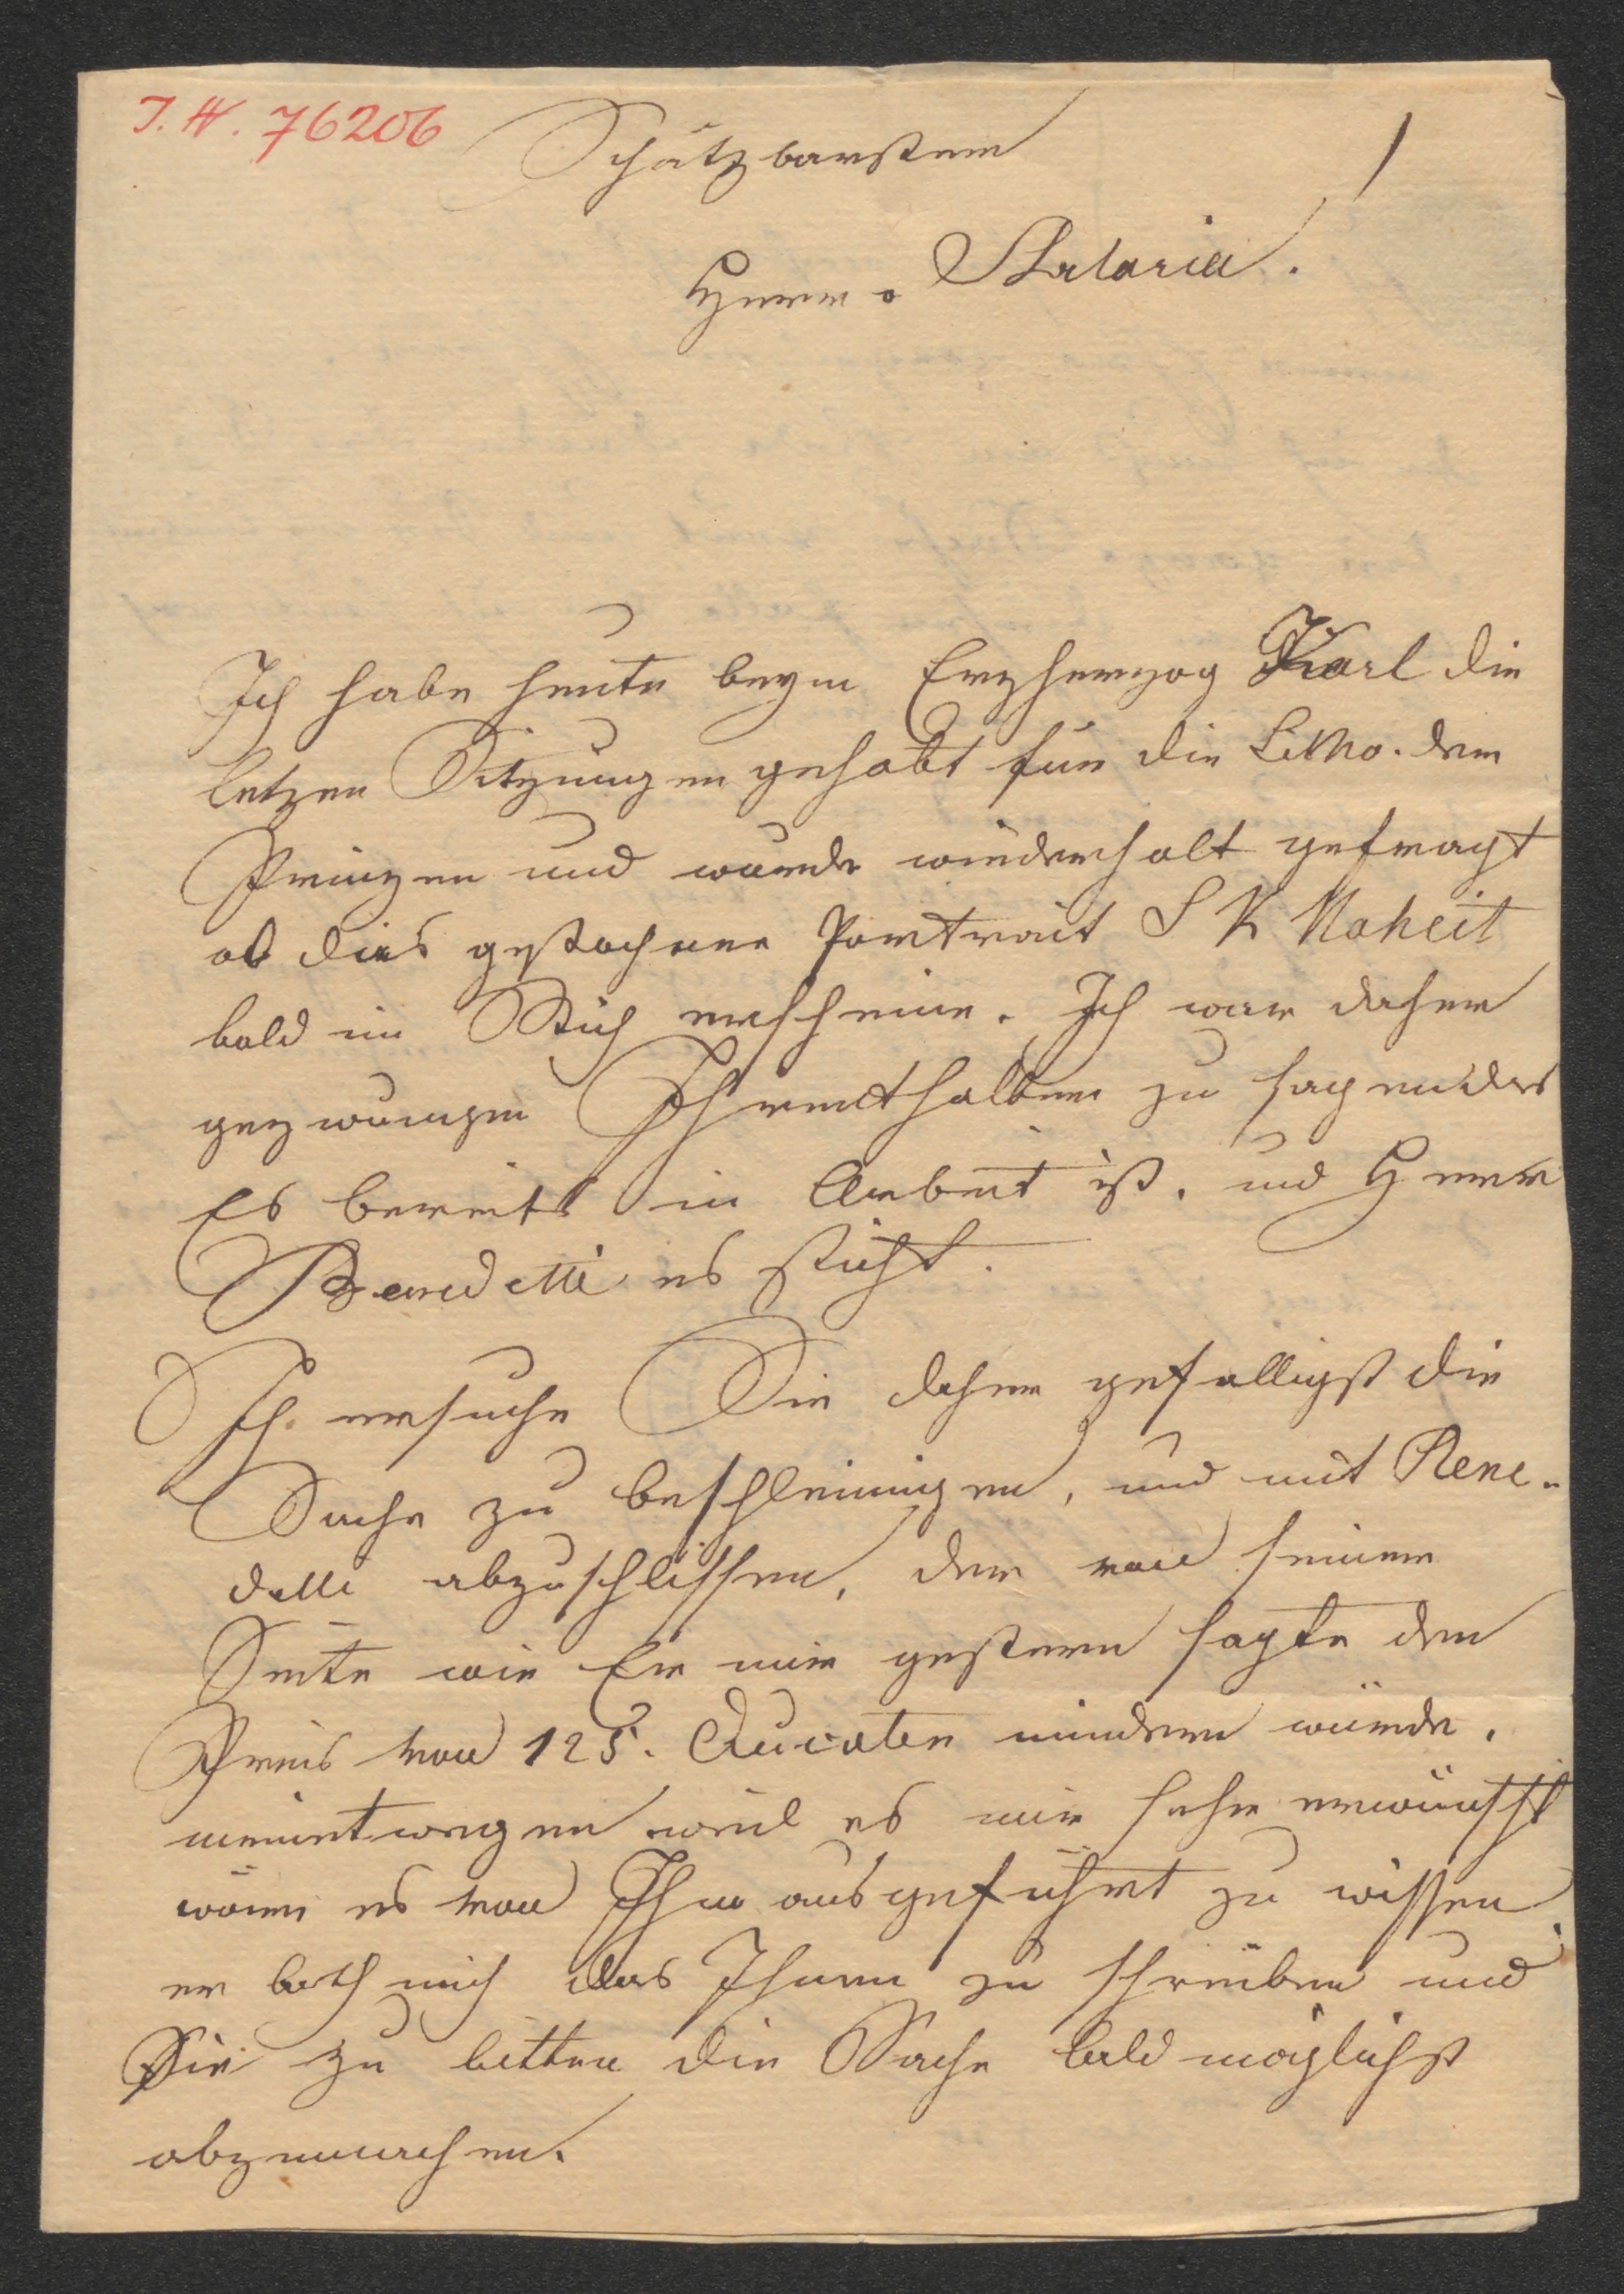 I. N. 76206
Schätzbarster
Herr v. Artaria.
Ich habe heute beym Erzherzog Karl die
letzen Sitzungen gehabt für die Litho. der
Prinzen und wurde wiederholt gefragt
ob dies gestochene Portrait S K Hoheit
bald im Stich erscheine. Ich war daher
gezwungen Ihrenthalben zu sagen das
Es bereits in Arbeit ist, und Herr
Benedetti es sticht.
Ich ersuche Sie daher gefalligst die
Sache zu beschleunigen, und mit Bene-
detti abzuschlissen, der von seiner
Seite wie Er mir gestern sagte den
Preis von 125. Ducaten mindern würde.
meinetwegen weil es mir sehr erwünscht
wäre es von Ihm ausgeführt zu wissen
er bath mich das Ihnen zu schreiben und
Sie zu bitten die Sache bald möglichst
abzumachen.